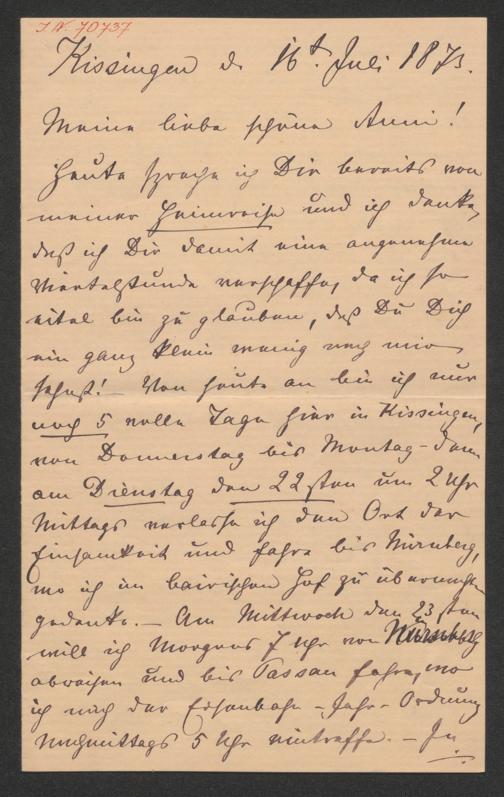 I.N. 70737
Kissingen d. 16t. Juli 1873.
Meine liebe schöne Anni!
Heute spreche ich Dir bereits von
meiner Heimreise und ich denke,
daß ich Dir damit eine angenehme
Viertelstunde verschaffe, da ich so
eitel bin zu glauben, daß Du Dich
ein ganz klein wenig nach mir
sehnst! – Von heute an bin ich nur
noch 5 volle Tage hier in Kissingen,
von Donnerstag bis Montag – denn
am Dienstag den 22sten um 2 Uhr
Mittags verlasse ich den Ort der
Einsamkeit und fahre bis Nürnberg,
wo ich im bairischen Hof zu übernachten
gedenke. – Am Mittwoch den 23sten
will ich Morgens 7 Uhr von Nürnberg
abreisen und bis Passau fahre, wo
ich nach der Eisenbahn-Fahr-Ordnung
Nachmittags 5 Uhr eintreffe. – In